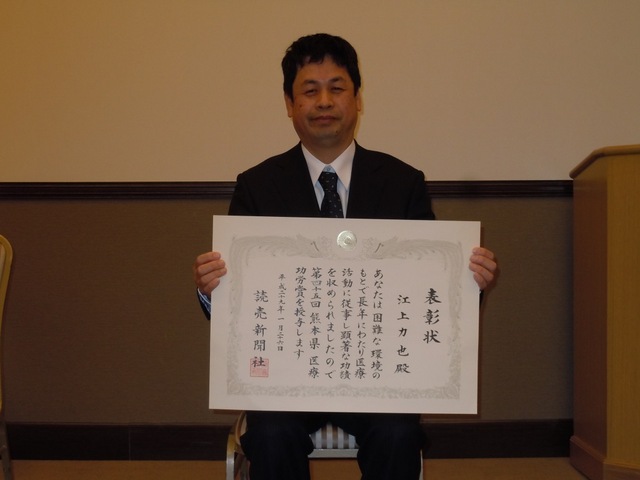 表彰状
江上力也殿
あなたは困難な環境の
もとで長年にわたり医療
活動に従事し顕著な功績
を収められましたので
第四十五回熊本県医療
功労賞を授与します
平成二十九年一月二十六日
読売新聞社